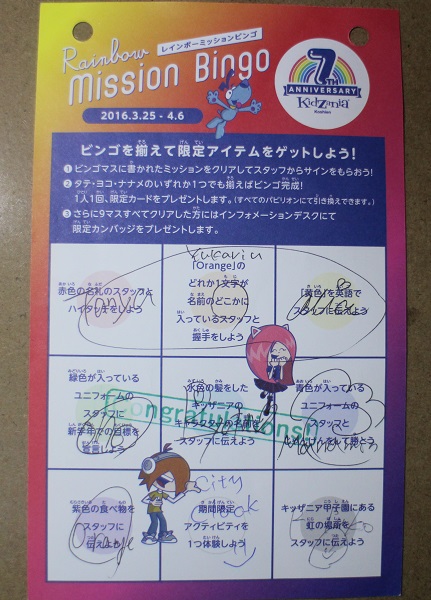 Rainbow
レインボーミッションビンゴ
Mission Bingo
2016.3.25 - 4.6
7TH
ANNIVERSARY
KidZania
Koshien
ビンゴを揃えて限定アイテムをゲットしよう!
① ビンゴマスに書かれたミッションをクリアしてスタッフからサインをもらおう!
② タテ・ヨコ・ナナメのいずれか1つでも揃えばビンゴ完成!
1人1回、限定カードをプレゼントします。(すべてのパビリオンにて引き換えできます。)
③ さらに9マスすべてクリアした方にはインフォメーションデスクにて
限定カンバッジをプレゼントします。
赤色の名札のスタッフと
ハイタッチをしよう
Yukariu
「Orange」の
どれか1文字が
名前のどこかに
入っているスタッフと
握手をしよう
「黄色」を英語で
スタッフに伝えよう
緑色が入っている
ユニフォームの
スタッフに
新学年での目標を
宣言しよう
水色の髪をした
キッザニアの
キャラクターの名前を
スタッフに伝えよう
青色が入っている
ユニフォームの
スタッフと
じゃんけんをして勝とう
Congratulations!
紫色の食べ物を
スタッフに
伝えよう
City
期間限定
アクティビティを
1つ体験しよう
キッザニア甲子園にある
虹の場所を
スタッフに伝えよう